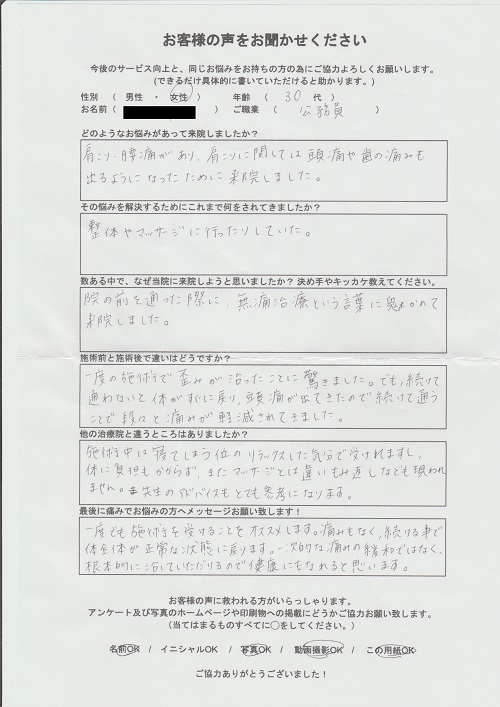 お客様の声をお聞かせください
今後のサービス向上と、同じお悩みをお持ちの方の為にご協力よろしくお願いします。
(できるだけ具体的に書いていただけると助かります。)
性別 （ 男性 ・ 女性 ） 年齢 （ 30 代 ）
お名前（ ） ご職業（ 公務員 ）
どのようなお悩みがあって来院しましたか？
肩こり・腰痛があり、肩こりに関しては頭痛や歯の痛みも
出るようになったために来院しました。
その悩みを解決するためにこれまで何をされてきましたか？
整体やマッサージに行ったりしていた。
数ある中で、なぜ当院に来院しようと思いましたか？ 決め手やキッカケ教えてください。
院の前を通った際に、無痛治療という言葉に魅かれて
来院しました。
施術前と施術後で違いはどうですか？
一度の施術で歪みが治ったことに驚きました。でも、続けて
通わないと体がすぐに戻り、頭痛が出てきたので続けて通う
ことで段々と痛みが軽減されてきました。
他の治療院と違うところはありましたか？
施術中は寝てしまう位のリラックスした気分で受けれますし、
体に負担もかからず、またマッサージとは違いもみ返しなども現われ
ません。先生のアドバイスもとても参考になります。
最後に痛みでお悩みの方へメッセージお願い致します！
一度でも施術を受けることをオススメします。痛みもなく、続ける事で
体全体が正常な状態に戻ります。一次的な痛みの緩和ではなく、
根本的に治していただけるので健康にもなれると思います。
お客様の声に救われる方がいらっしゃります。
アンケート及び写真のホームページや印刷物への掲載にどうかご協力お願い致します。
(当てはまるものすべてに○をしてください。)
名前OK / イニシャルOK / 写真OK / 動画撮影OK / この用紙OK
ご協力ありがとうございました！